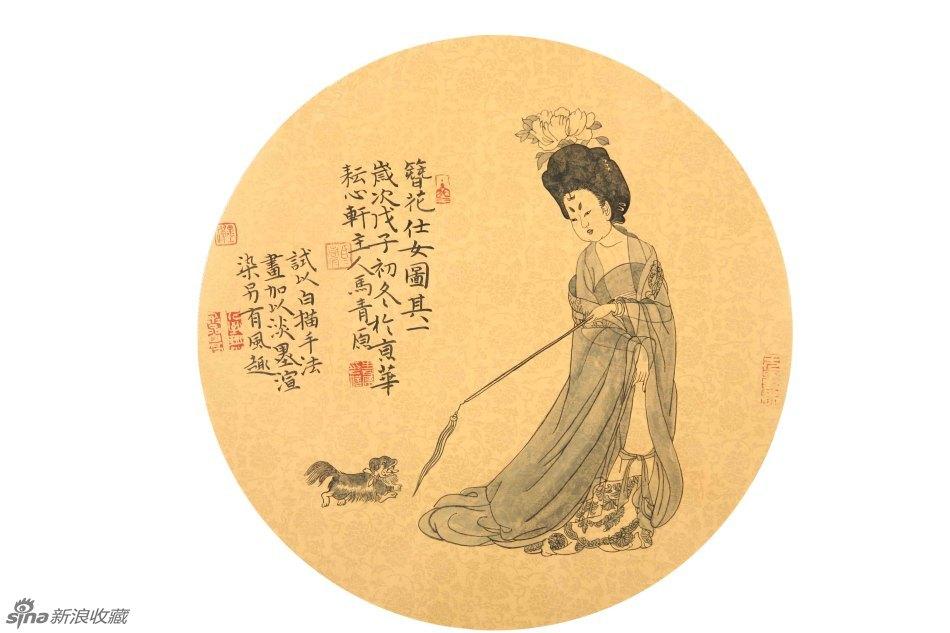 簪花仕女圖其一
歲次戊子初冬於京華
耘心軒主人馬青原
試以白描手法
畫加以淡墨渲
染另有風趣
sina新浪收藏